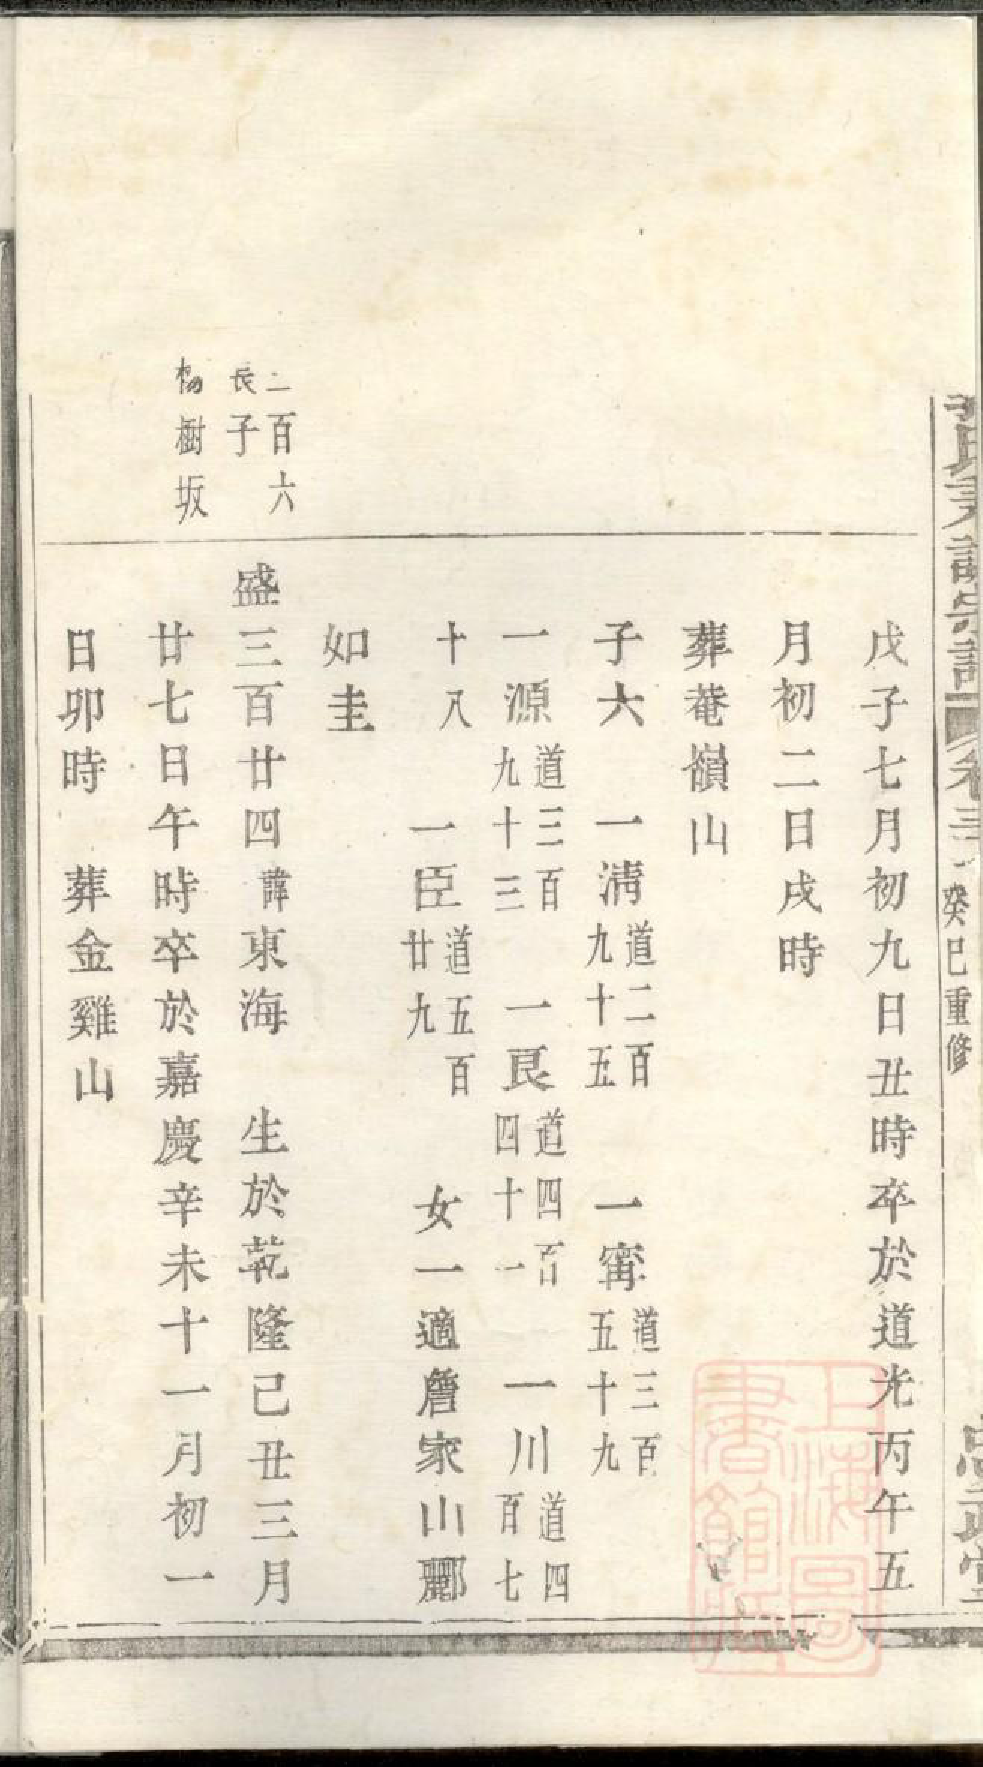 卷三
癸巳重修
戊子七月初九日丑時卒於道光丙午五
月初二日戌時
葬菴嶺山
子六 一淸道二百九十五 一甯道三百五十九
一源道三百九十三 一良道四百四十一 一川道四百七
十八 一臣道五百廿九 女一適詹家山酈
如圭
二百六
長子
楊樹坂
盛三百廿四諱東海 生於乾隆己丑三月
廿七日午時卒於嘉慶辛未十一月初一
日卯時 葬金雞山
上海圖
書館藏